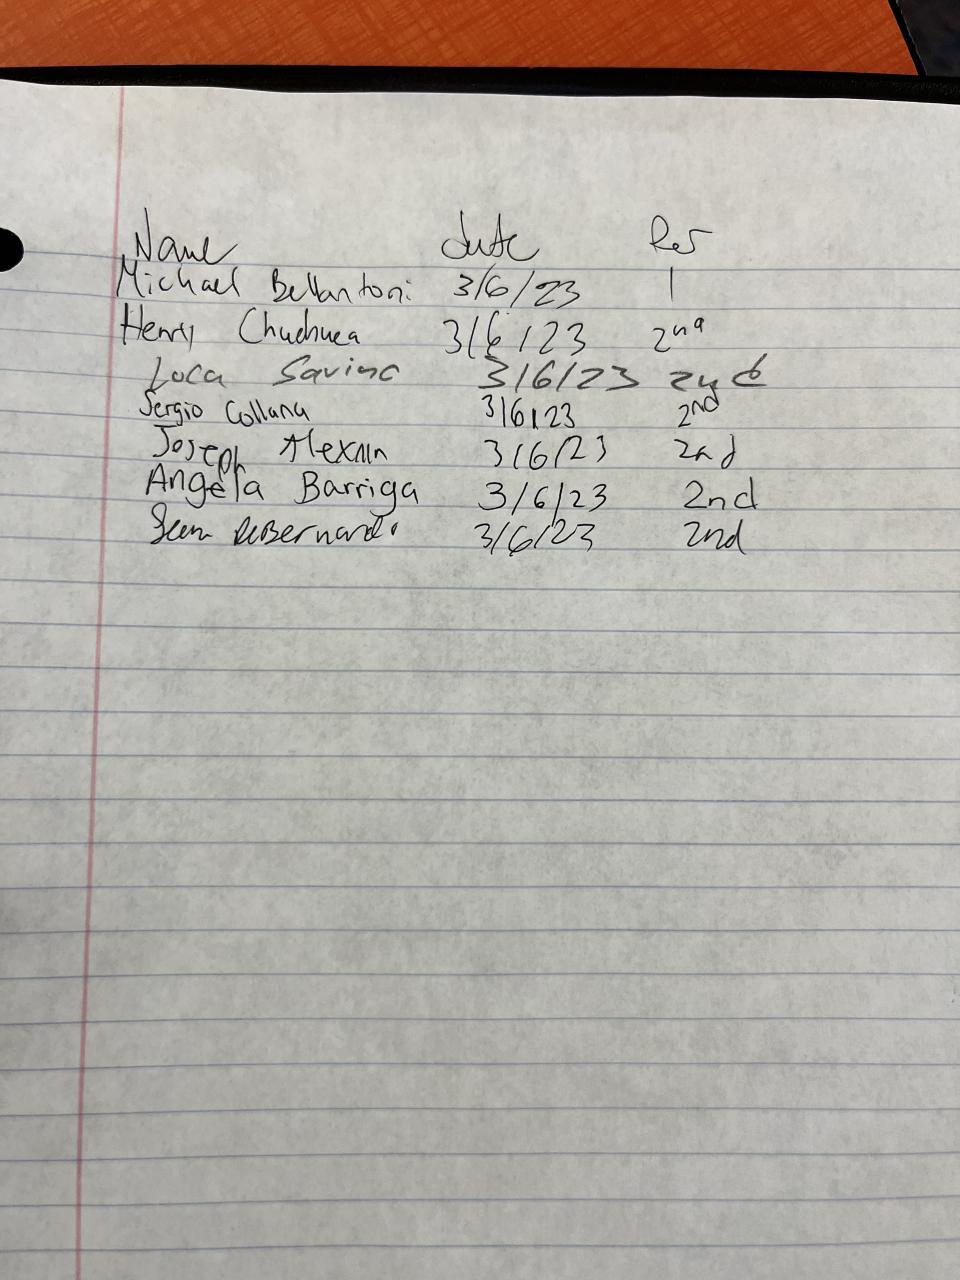 Name date
Michael Bellantoni 3/6/23 1
Henry 3/6/23 2nd
Luca Savino 3/6/23 2nd
Sergio Collana 3/6/23 2nd
Joseph 3/6/23 2nd
Angela Barriga 3/6/23 2nd
Sean DeBernardo 3/6/23 2nd